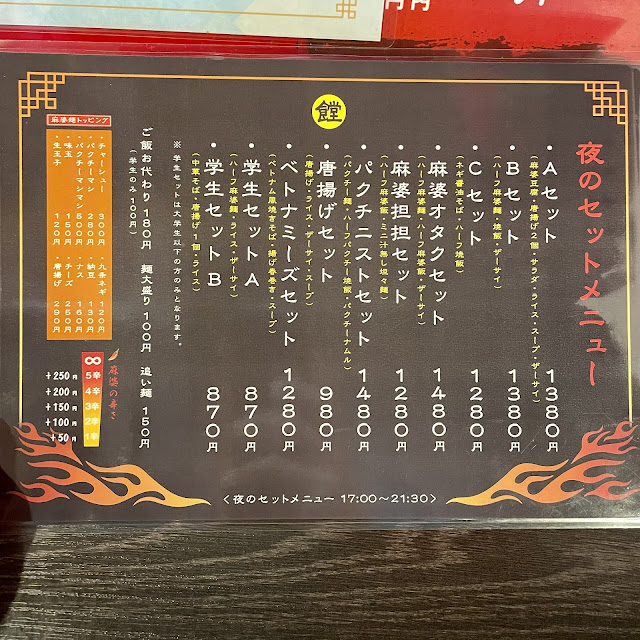 円円
饄
夜のセットメニュー
・Aセット 1380円
（麻婆豆腐・唐揚げ2個・サラダ・ライス・スープ・ザーサイ）
・Bセット 1380円
（ハーフ麻婆麺・焼飯・ザーサイ）
・Cセット 1280円
（ネギ醤油そば・ハーフ焼飯）
・麻婆オタクセット 1480円
（ハーフ麻婆麺・ハーフ麻婆飯・ザーサイ）
・麻婆担担セット 1280円
（ハーフ麻婆飯・ミニ汁無し坦々麺）
・パクチニストセット 1480円
（パクチー麺・ハーフパクチー焼飯・パクチーナムル）
・唐揚げセット 980円
（唐揚げ・ライス・ザーサイ・スープ）
・ベトナミーズセット 1280円
（ベトナム風焼きそば・揚げ春巻き・スープ）
・学生セットA 870円
（ハーフ麻婆麺・ライス・ザーサイ）
・学生セットB 870円
（中華そば・唐揚げ1個・ライス）
※学生セットは大学生以下の方のみとなります。
ご飯お代わり 180円 麺大盛り 100円 追い麺 150円
（学生のみ100円）
麻婆麺トッピング
・チャーシュー 300円
・パクチーマン 280円
・パクチーマンマン 500円
・味玉 150円
・生玉子 120円
・九条ネギ 120円
・納豆 130円
・ナス 160円
・チーズ 250円
・唐揚げ 290円
麻婆の辛さ
∞ 5辛 +250円
4辛 +200円
3辛 +150円
2辛 +100円
1辛 +50円
＜夜のセットメニュー 17:00〜21:30＞